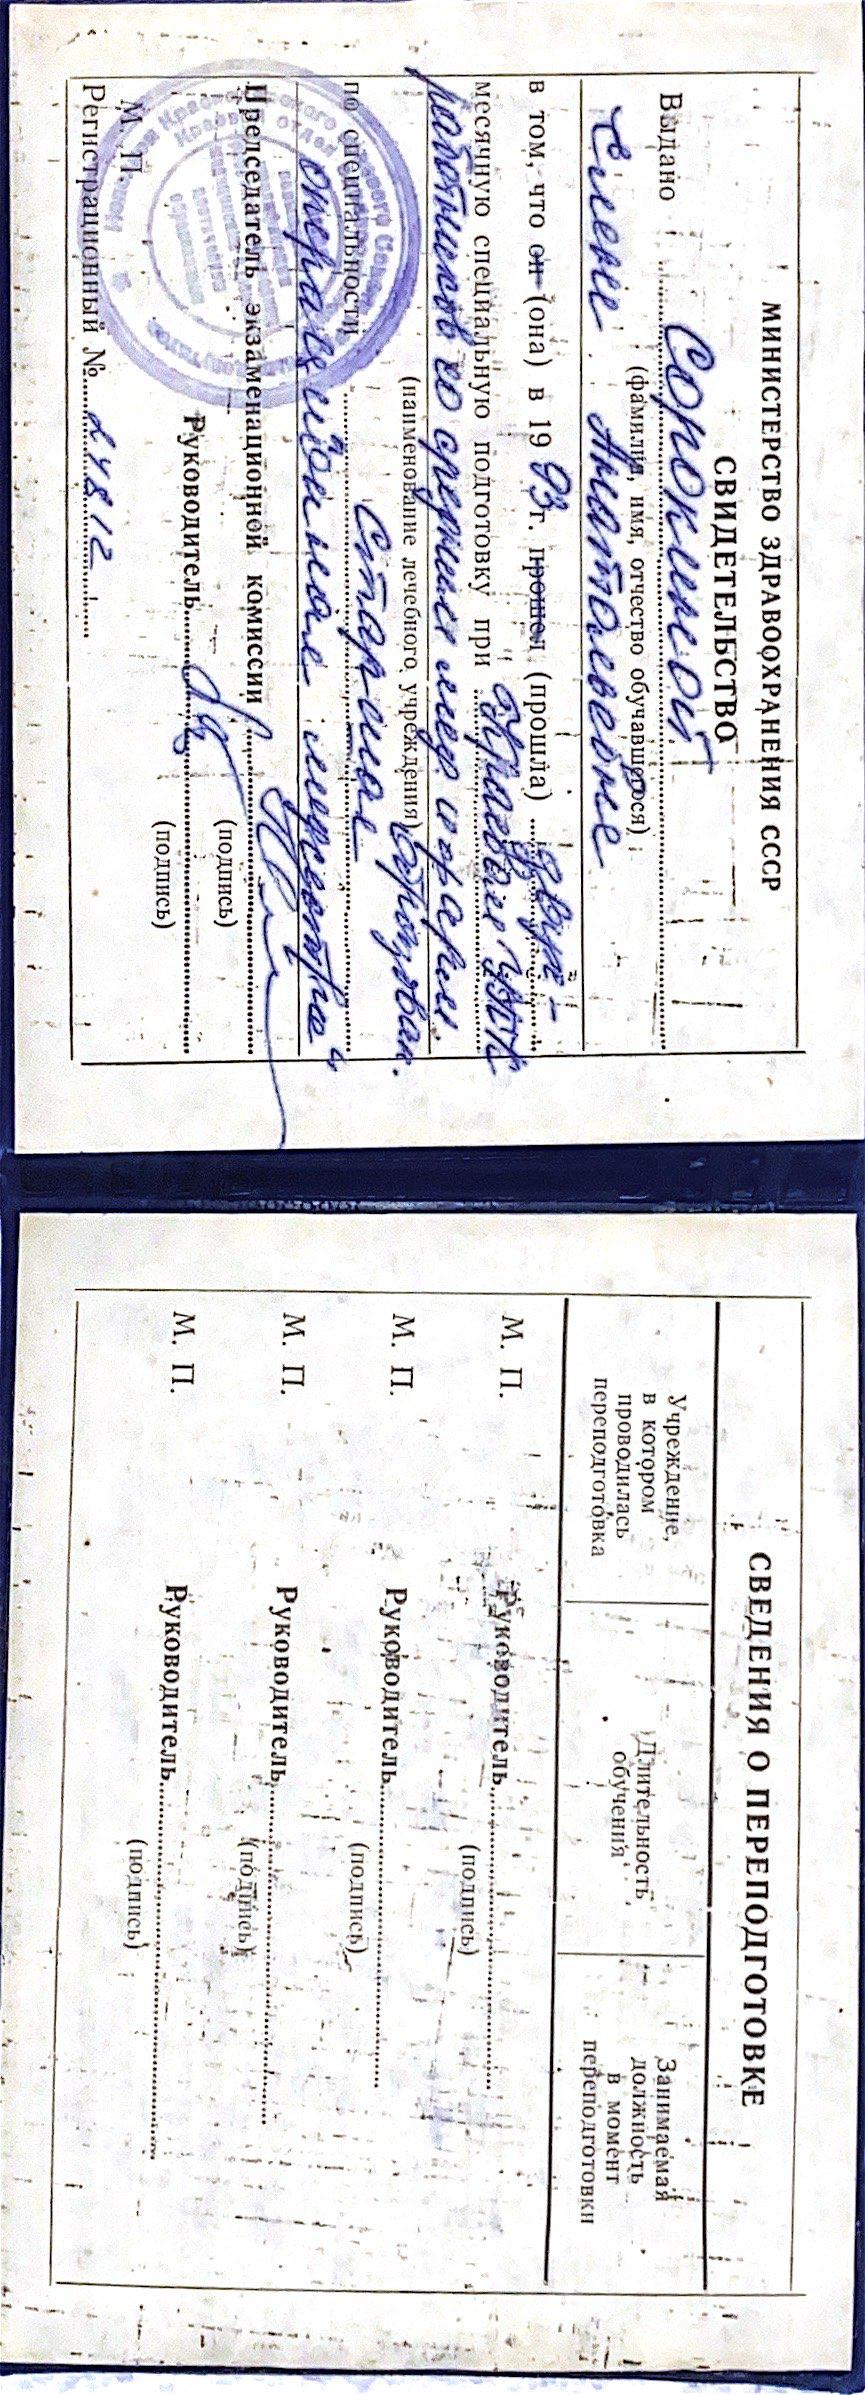 МИНИСТЕРСТВО ЗДРАВООХРАНЕНИЯ СССР
СВИДЕТЕЛЬСТВО
Выдано Сорокиной
(фамилия, имя, отчество обучавшегося)
Елене Анатольевне
в том, что он (она) в 1993г. прошел (прошла) двух-
месячную специальную подготовку при Краевом УПК
работников со средним мед. и фарм.
(наименование лечебного учреждения) образован.
по специальности Старшая
операционная медсестра"
Председатель экзаменационной комиссии
(подпись)
Руководитель
(подпись)
М. П.
Регистрационный № 24812
СВЕДЕНИЯ О ПЕРЕПОДГОТОВКЕ
Учреждение, в котором проводилась переподготовка
Длительность обучения
Занимаемая должность в момент переподготовки
М. П. Руководитель
(подпись)
М. П. Руководитель
(подпись)
М. П. Руководитель
(подпись)
М. П. Руководитель
(подпись)